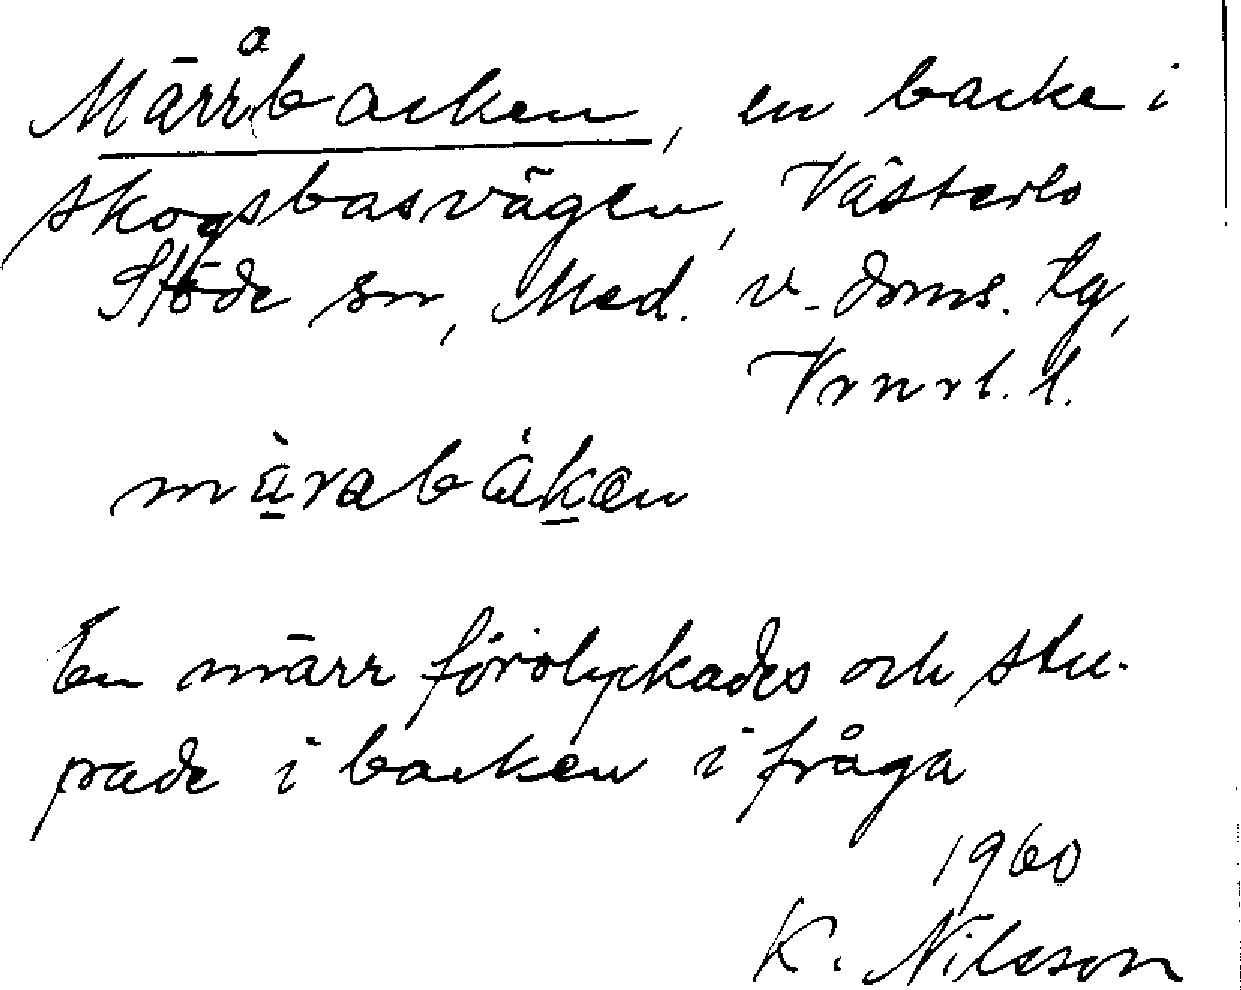 Märråbacken, en backe i
skogsbasvägen, Västerlo
Stöde sn, Med. v. doms. tg,
Vrnrl. l.
mä̀rabáken
En märr förolyckades och stu-
pade i backen i fråga
1960
K. Nilsson